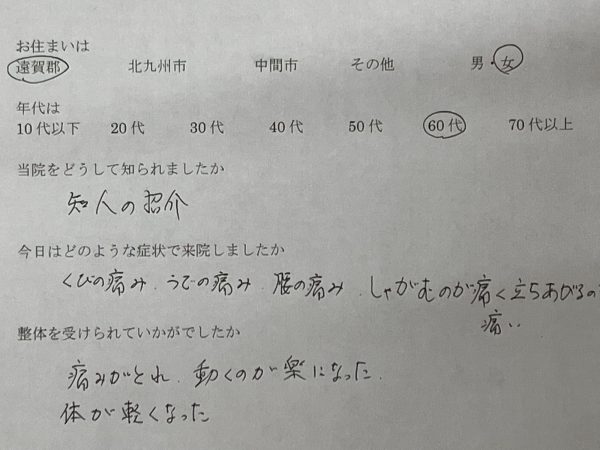 お住まいは
遠賀郡 北九州市 中間市 その他 男・女
年代は
10代以下 20代 30代 40代 50代 60代 70代以上
当院をどうして知られましたか
知人の紹介
今日はどのような症状で来院しましたか
くびの痛み、うでの痛み、腰の痛み、しゃがむのが痛く立ちあがるの
痛い
整体を受けられていかがでしたか
痛みがとれ、動くのが楽になった.
体が軽くなった